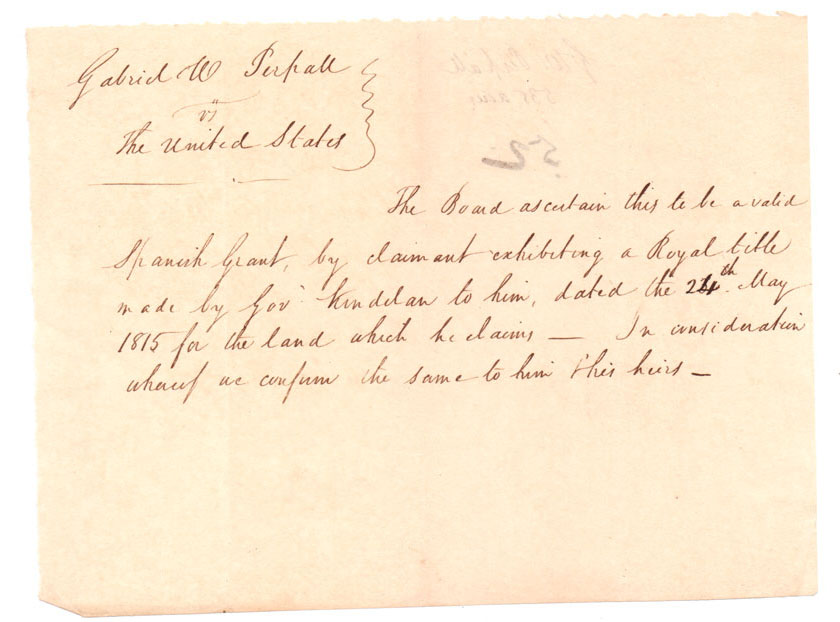 Gabriel W Perpall
vs
The United States
The Board ascertain this to be a valid
Spanish Grant, by claimant exhibiting a Royal title
made by Govr Kindelan to him, dated the 24th May
1815 for the land which he claims — In consideration
whereof we confirm the same to him & his heirs —
52